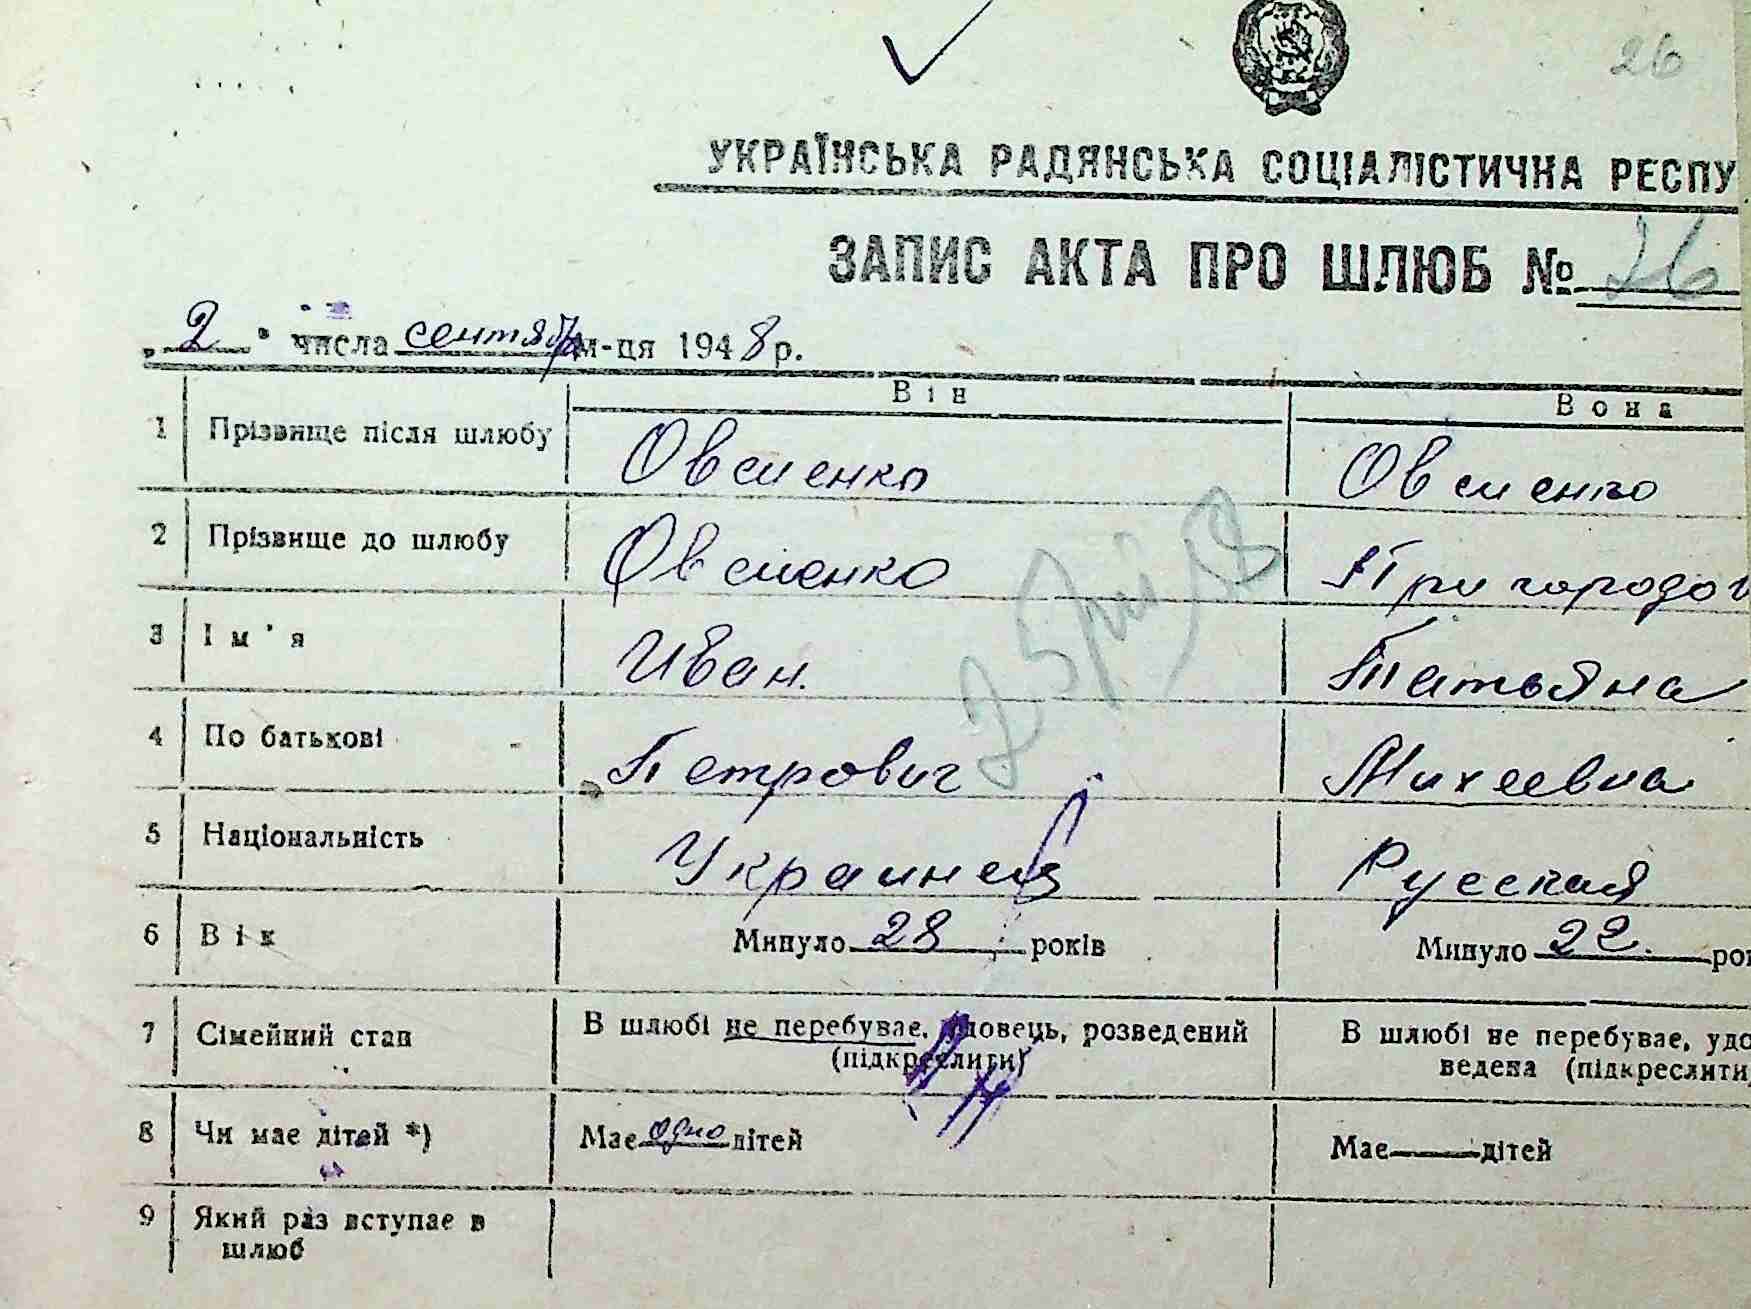 26
УКРАЇНСЬКА РАДЯНСЬКА СОЦІАЛІСТИЧНА РЕСПУ
ЗАПИС АКТА ПРО ШЛЮБ № 26
„2" числа сентября м-ця 1948 р.
Він Вона
1 Прізвище після шлюбу Овсиенко Овсиенко
2 Прізвище до шлюбу Овсиенко Пригородов
3 Ім'я Иван. Татьяна
4 По батькові Петрович Михеевна
5 Національність Украинец Русская
6 Вік Минуло 28 років Минуло 22. рок
7 Сімейний стан В шлюбі не перебуває, удовець, розведений В шлюбі не перебуває, удо
(підкреслити) ведена (підкреслити)
8 Чи має дітей *) Має одно дітей Має — дітей
9 Який раз вступає в
шлюб